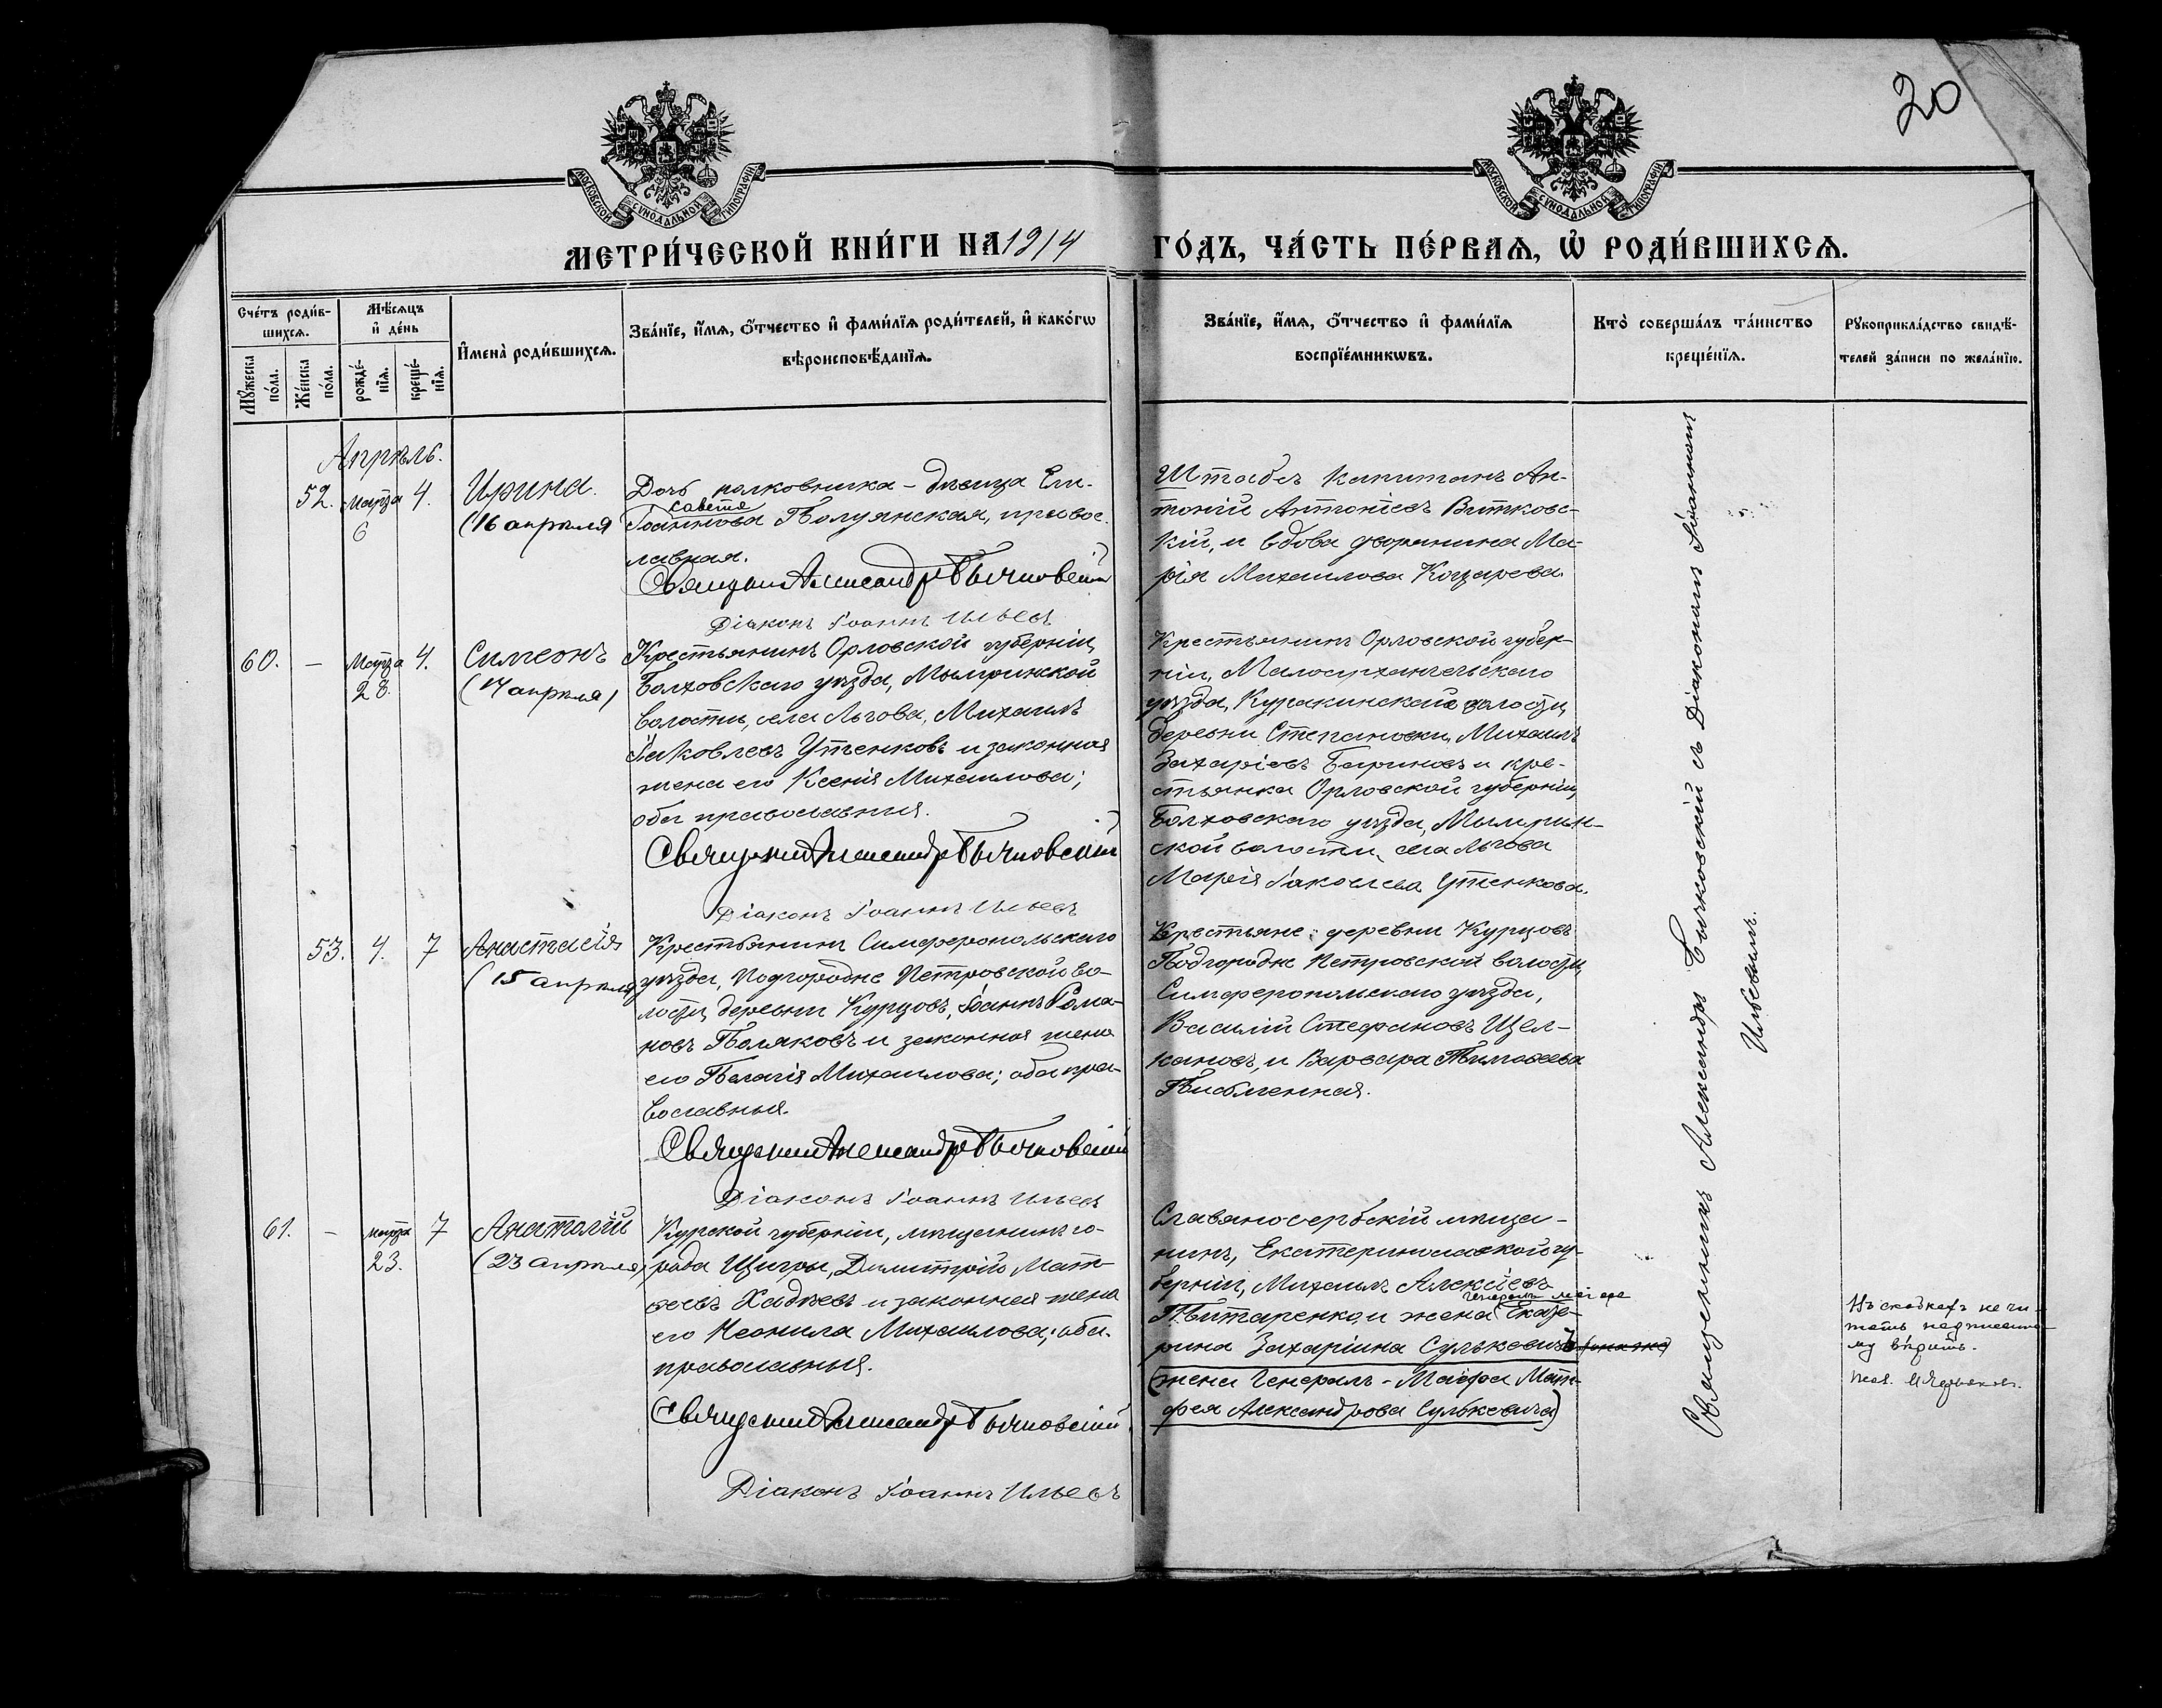 20
МОСКОВСКОЙ СѴНОДАЛЬНОЙ ТИПОГРАФІИ
МОСКОВСКОЙ СѴНОДАЛЬНОЙ ТИПОГРАФІИ
МЕТРИ́ЧЕСКОЙ КНИ́ГИ НА 1914 ГО́ДЪ, ЧА́СТЬ ПЕ́РВАѦ, Ѽ РОДИ́ВШИХСѦ.
Сче́тъ роди́в-
шихсѧ.
Мꙋ́жеска по́ла.
Же́нска по́ла.
Мѣ́сѧцъ
и҆ де́нь
рожде́-
нїѧ.
креще́-
нїѧ.
И҆мена̀ роди́вшихсѧ.
Зва́нїе, и҆́мѧ, ѻ҆́тчество и҆ фами́лїѧ роди́телей, и҆ како́гѡ
вѣроисповѣ́данїѧ.
Зва́нїе, и҆́мѧ, ѻ҆́тчество и҆ фами́лїѧ
воспрїе́мникѡвъ.
Кто̀ соверша́лъ та́инство
креще́нїѧ.
Рꙋкоприкла́дство свидѣ́-
телей за́писи по жела́нїю.
Апрѣль.
52. Марта 6 4. Ирина.
(16 апрѣля
Дочь полковника – дѣвица Ели-
савета
Іоаннова Полуянская, правос-
лавная.
Священникъ Александръ Бычковскій
Діаконъ Іоаннъ Ильевъ
Штабсъ Капитанъ Ан-
тоній Антоніевъ Витковс-
кій, и вдова дворянина Ма-
рія Михаилова Кохарева.
60. – Марта 28. 4. Симеонъ
(17 апрѣля)
Крестьянинъ Орловской губерніи,
Болховскаго уѣзда, Мымринской
волости, села Льгова, Михаилъ
Іаковлевъ Утенковъ и законная
жена его Ксенія Михаилова;
оба православныя.
Священникъ Александръ Бычковскій
Діаконъ Іоаннъ Ильевъ
Крестьянинъ Орловской губер-
ніи, Малоархангельскаго
уѣзда, Куракинской волости,
деревни Степановки, Михаилъ
Захаріевъ Бариновъ и кре-
стьянка Орловской губерніи,
Болховскаго уѣзда, Мымрин-
ской волости, села Льгова
Марія Іаковлева Утенкова.
53. 4. 7 Анастасія
(15 апрѣля
Крестьянинъ Симферопольскаго
уѣзда, Подгородне Петровской во-
лости, деревни Курцовъ, Іоаннъ Рома-
новъ Поляковъ и законная жена
его Пелагія Михаилова; оба пра-
вославныя.
Священникъ Александръ Бычковскій
Діаконъ Іоаннъ Ильевъ
Крестьяне: деревни Курцовъ
Подгородне Петровской волости,
Симферопольскаго уѣзда,
Василій Стефановъ Щел-
кановъ, и Варвара Тимоѳеева
Письменная.
61. – марта 23. 7 Анатолій
(23 апрѣля)
Курской губерніи, мѣщанинъ го-
рода Щигры, Димитрій Мат-
ѳеевъ Хадѣевъ и законная жена
его Неонила Михаилова; оба
православныя.
Священникъ Александръ Бычковскій.
Діаконъ Іоаннъ Ильевъ
Славяносербскій мѣща-
нинъ, Екатеринославской гу-
берніи, Михаилъ Алексіевъ
Генералъ маіора
Питаренко, и жена Екате-
рина Захаріина Сулькевичъ
(жена Генералъ-Маіора Мат-
фея Александрова Сулькевича)
Священникъ Александръ Бычковскій съ Діакономъ Іоанномъ
Ильевымъ.
Въ скобкахъ не чи-
тать надписанно-
му вѣрить.